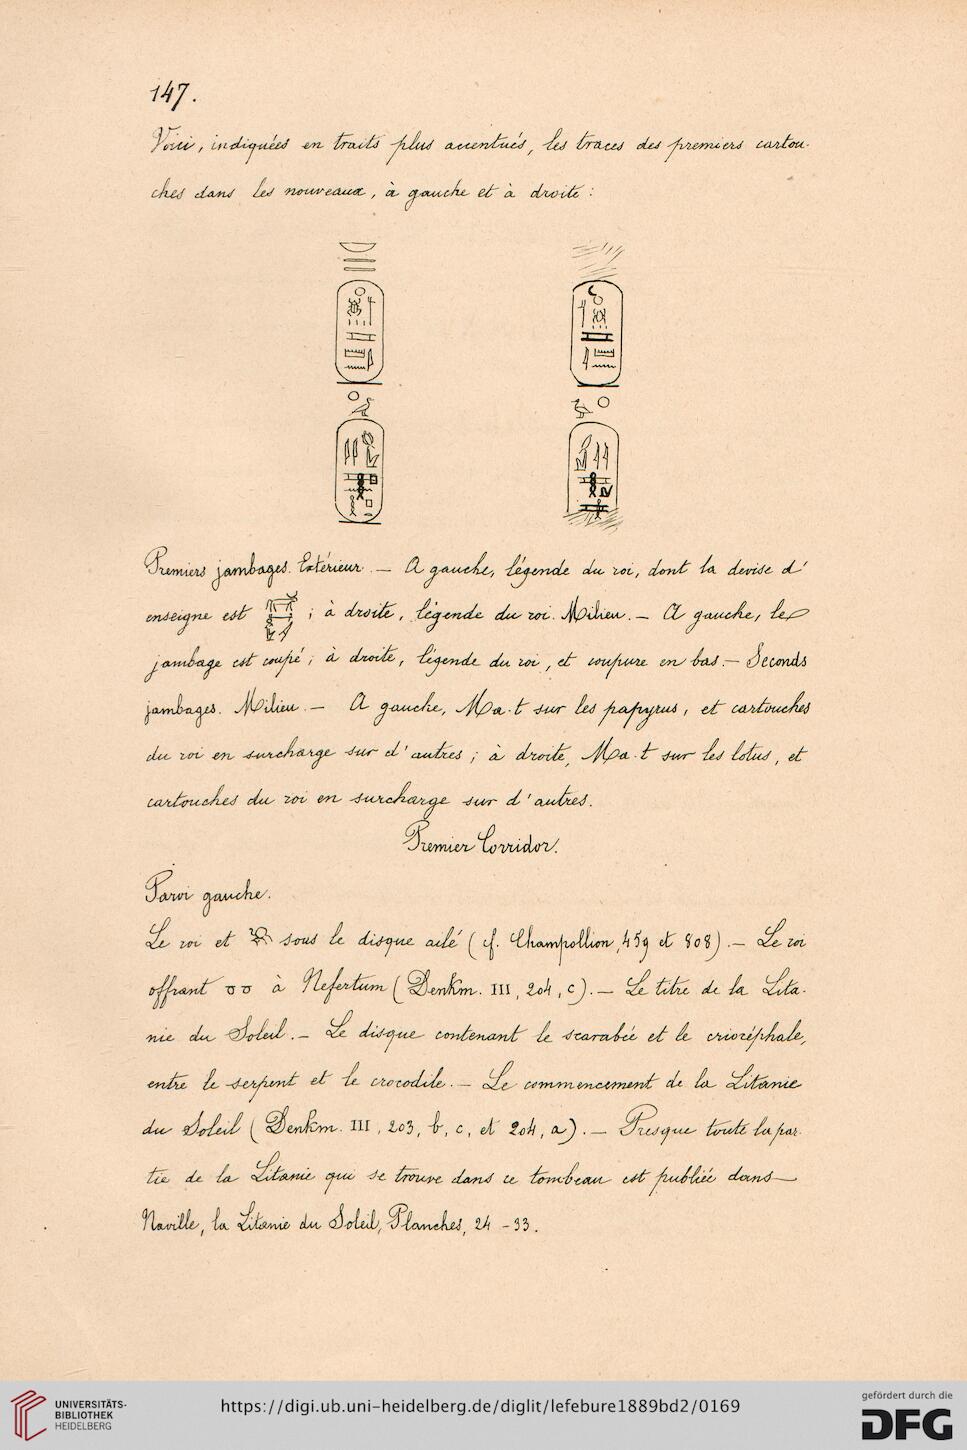 147.
Voici, indiquées en traits plus accentués, les traces des premiers cartou-
ches dans les nouveaux, à gauche et à droite :
Premiers jambages. Extérieur. — A gauche, légende du roi, dont la devise d'
enseigne est ; à droite, légende du roi. Milieu. — A gauche, le
jambage est coupé ; à droite, légende du roi, et coupure en bas. — Seconds
jambages. Milieu. — A gauche, Ma-t sur les papyrus, et cartouches
du roi en surcharge sur d'autres ; à droite, Ma-t sur les lotus, et
cartouches du roi en surcharge sur d'autres.
Premier Corridor.
Paroi gauche.
Le roi et sous le disque ailé (cf. Champollion, 459 et 808). — Le roi
offrant à Nefertum (Denkm. III, 204, c). — Le titre de la Lita-
nie du Soleil. — Le disque contenant le scarabée et le criocéphale,
entre le serpent et le crocodile. — Le commencement de la Litanie
du Soleil (Denkm. III, 203, b, c, et 204, a). — Presque toute la par-
tie de la Litanie qui se trouve dans ce tombeau est publiée dans
Naville, la Litanie du Soleil, Planches, 24 - 33.
UNIVERSITÄTS-
BIBLIOTHEK
HEIDELBERG
https://digi.ub.uni-heidelberg.de/diglit/lefebure1889bd2/0169
gefördert durch die
DFG